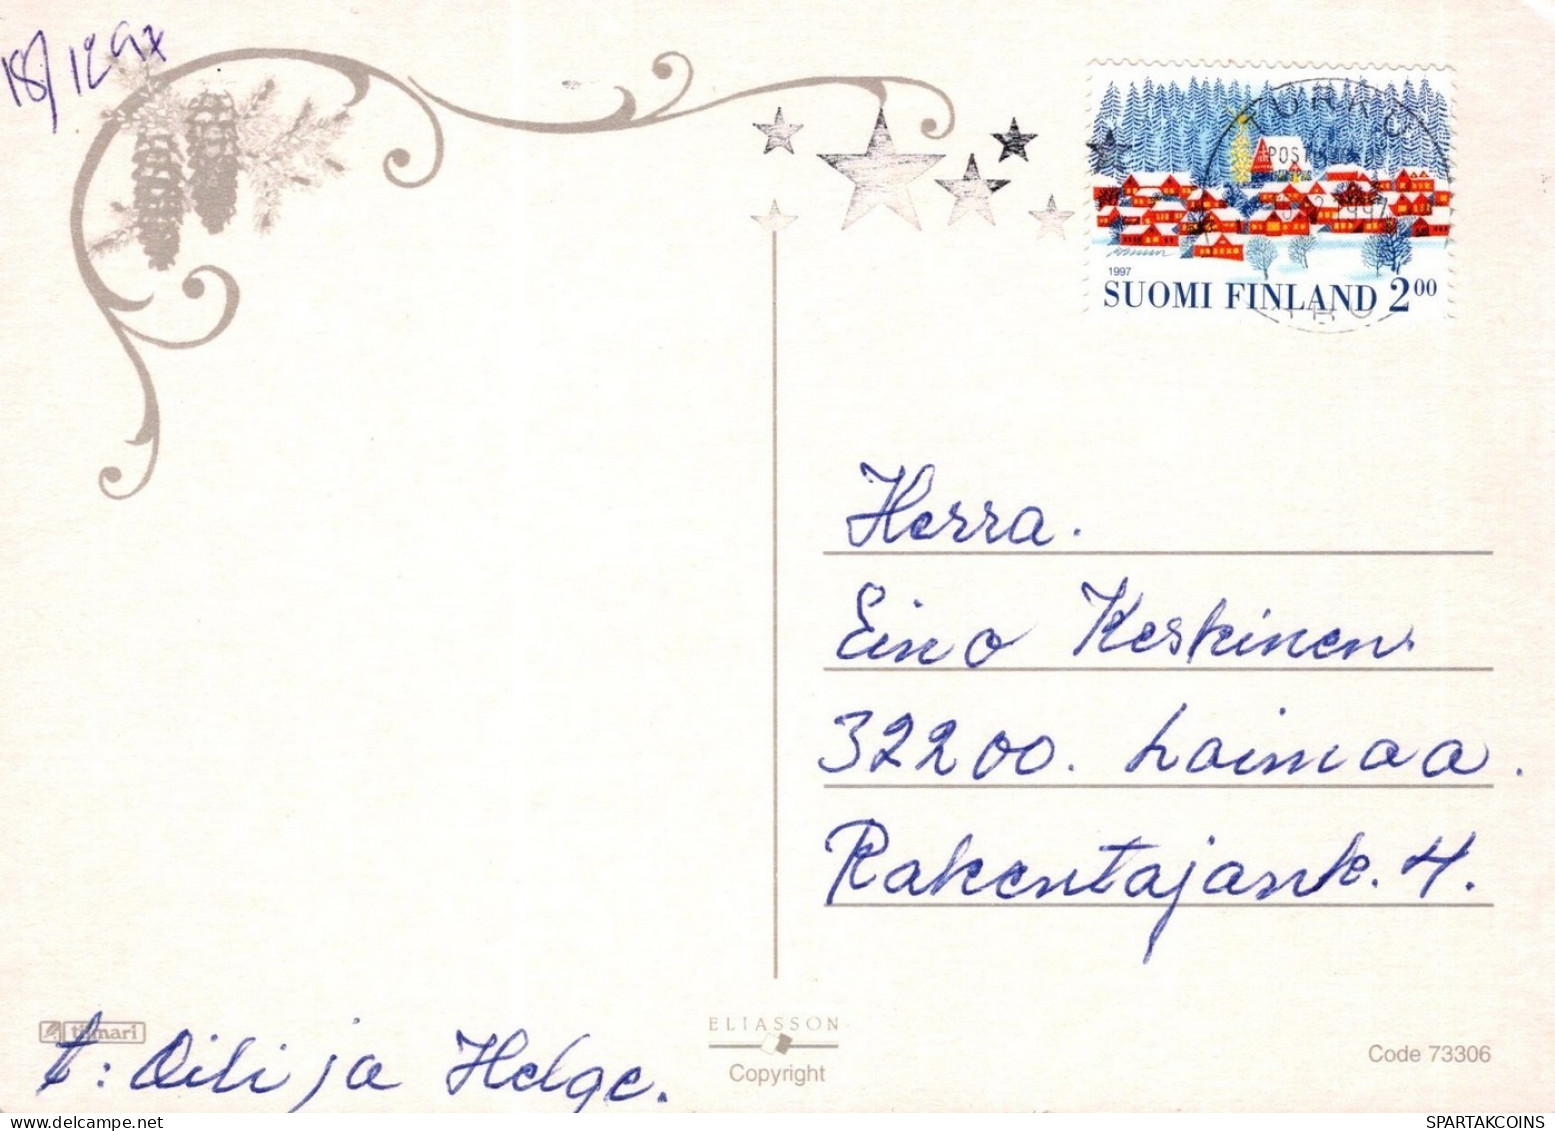 18/12 97
TURKU
POST
1997
SUOMI FINLAND 2 00
ÅBO
Herra.
Eino Keskinen.
32200. Loimaa.
Rakentajank. 4.
tiimari
t: Oili ja Helge.
ELIASSON
Copyright
Code 73306
SPARTAKCOINS